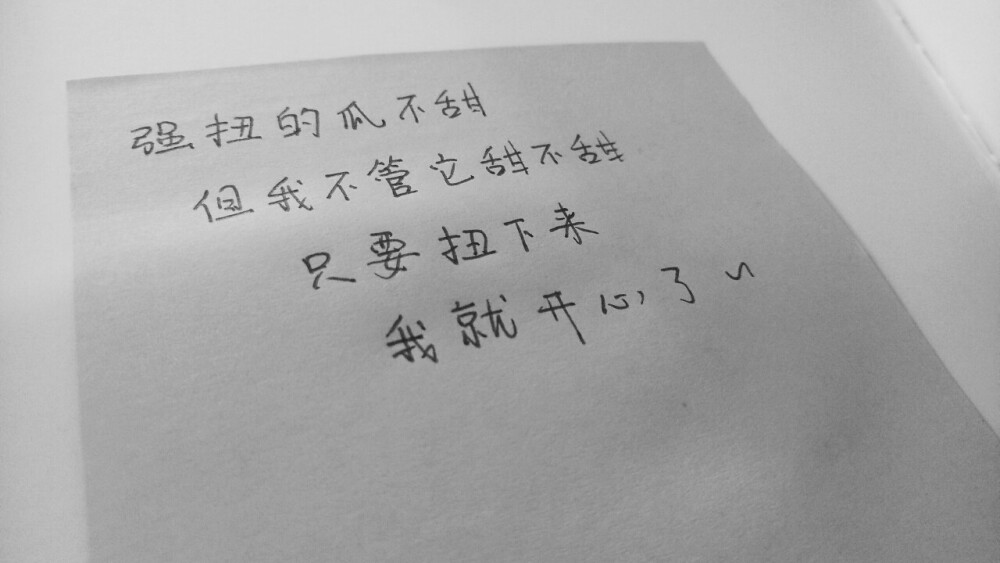 强扭的瓜不甜
但我不管它甜不甜
只要扭下来
我就开心了~